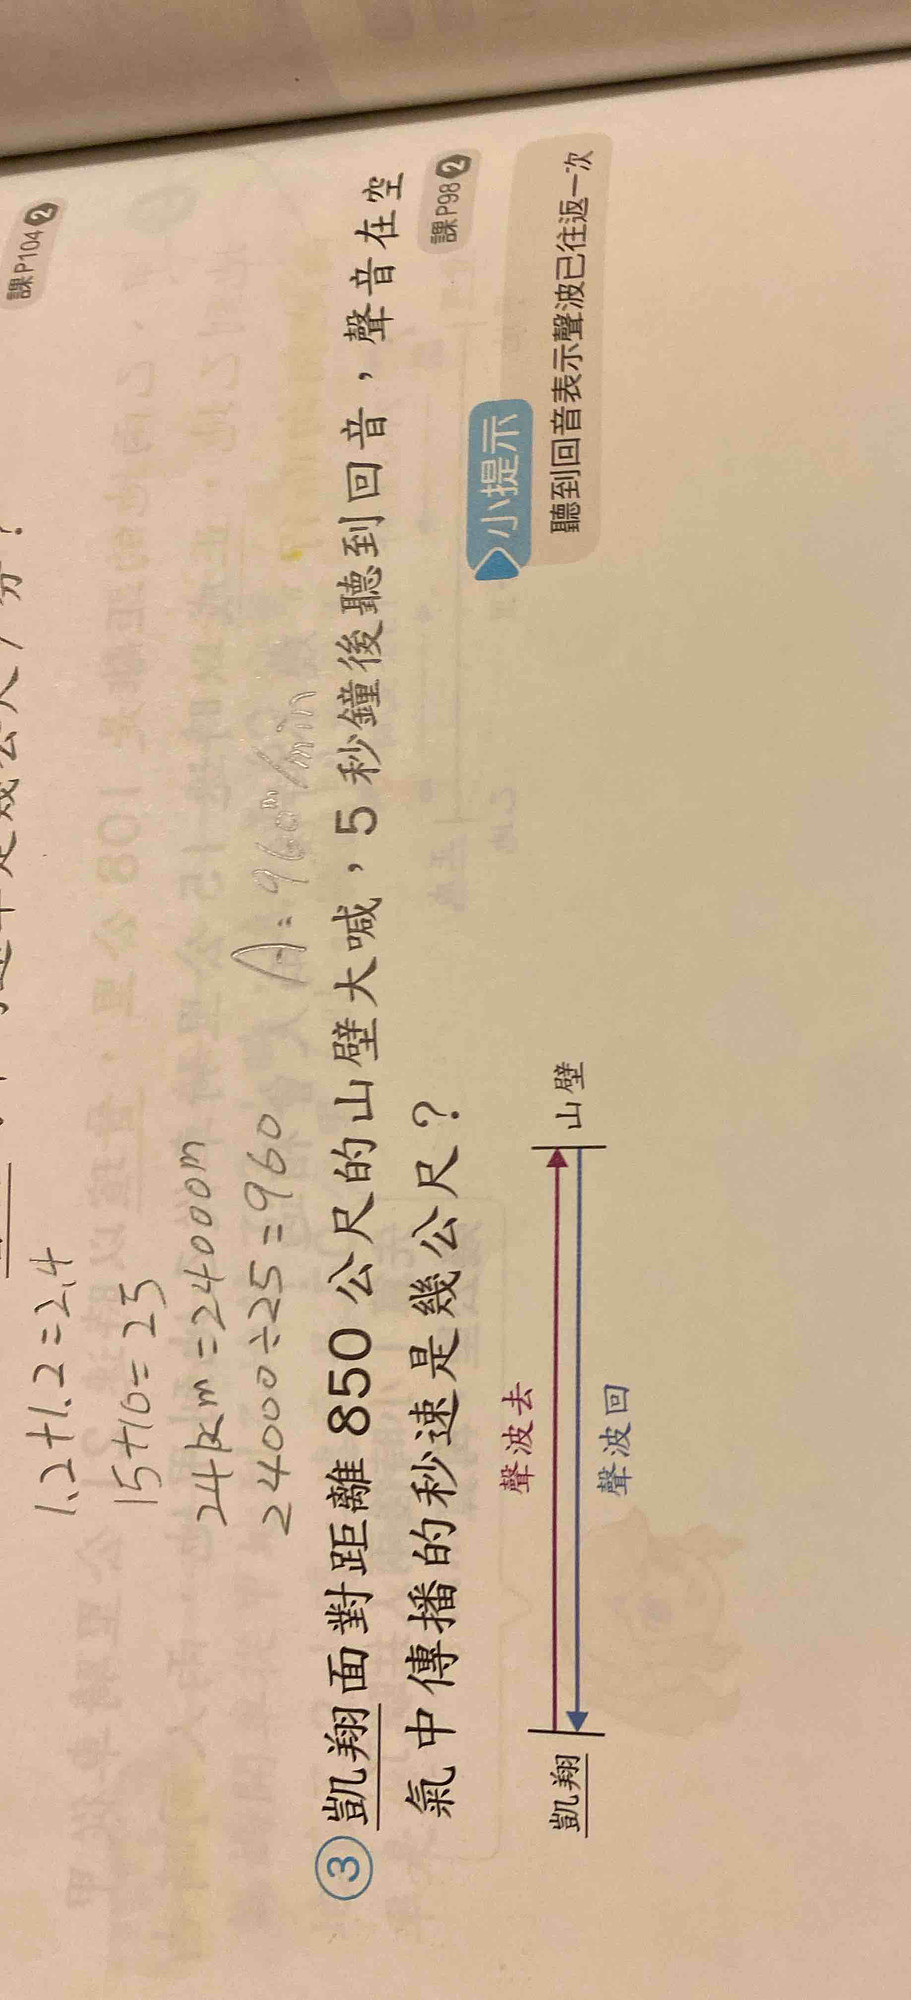 課P104 2
1.2+1.2=2.4
15+10=25
24km=24000m
24000÷25=960
A:960m/min
③凱翔面對距離850公尺的山壁大喊，5秒鐘後聽到回音，聲音在空
氣中傳播的秒速是幾公尺？
課P98 2
小提示
聽到回音表示聲波已往返一次
聲波去
凱翔
山壁
聲波回